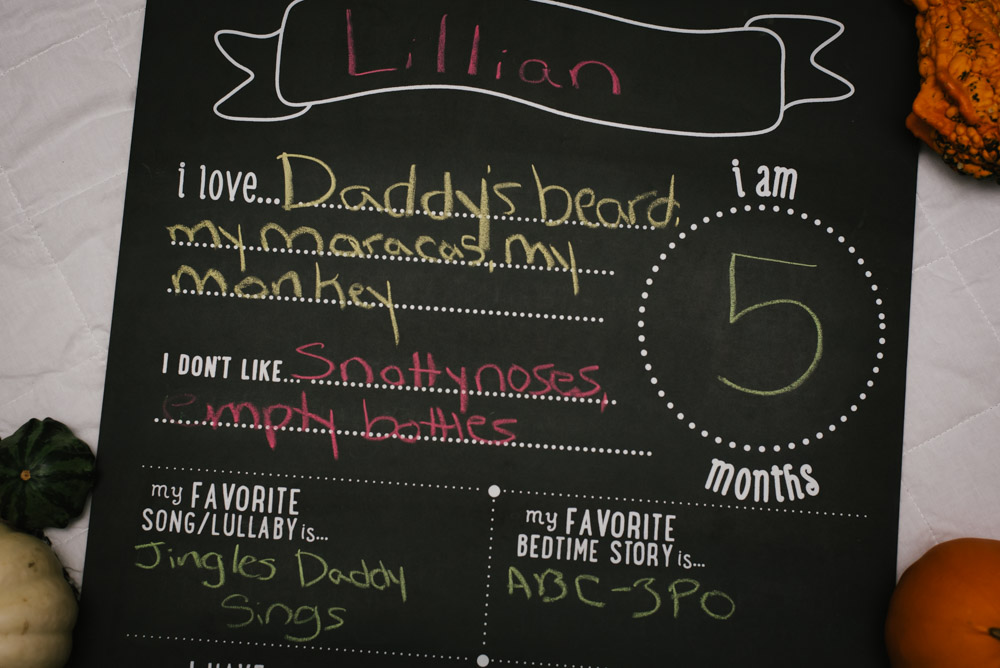 Lillian
i love... Daddy's beard,
my maracas, my
monkey
i am
5
months
I DON'T LIKE... Snotty noses,
empty bottles
my FAVORITE
SONG/LULLABY is...
Jingles Daddy
Sings
my FAVORITE
BEDTIME STORY is...
ABC-3PO
I HAVE